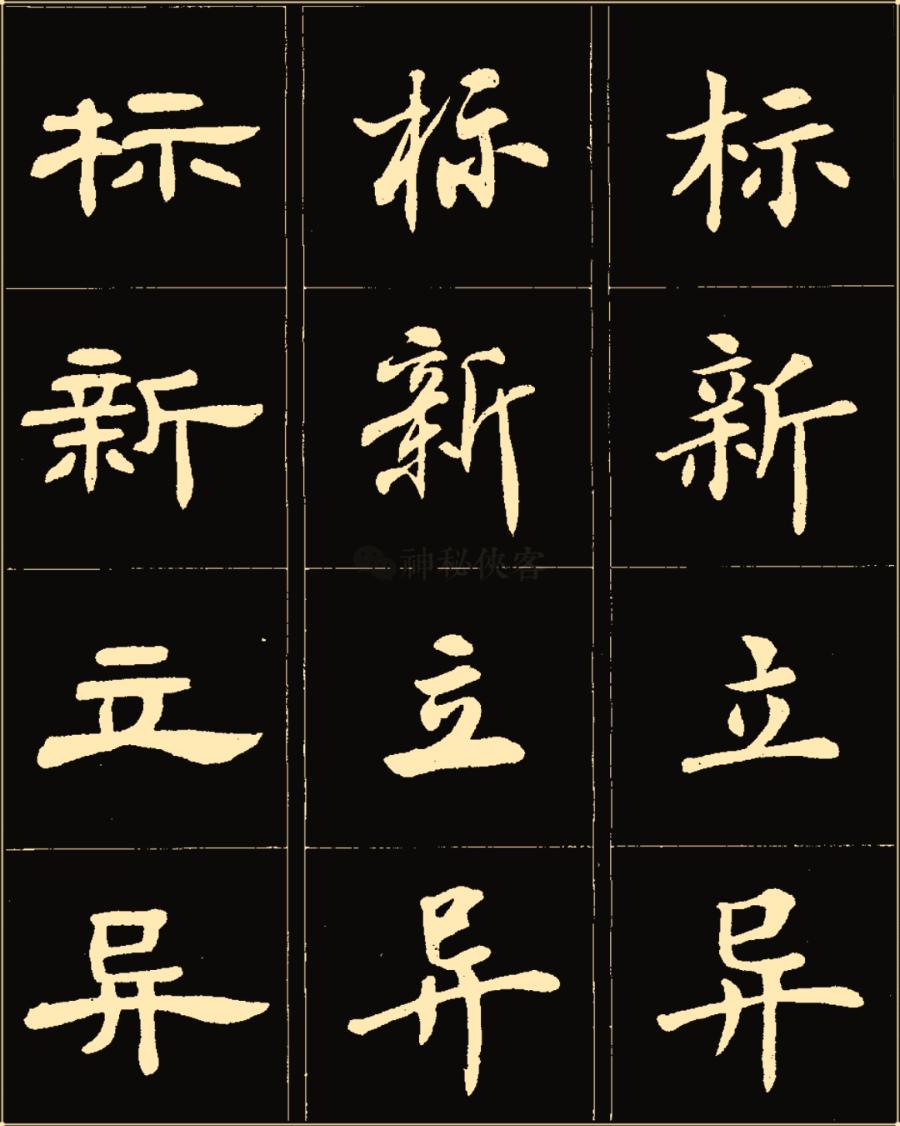 标新立异
标新立异
标新立异
神秘侠客